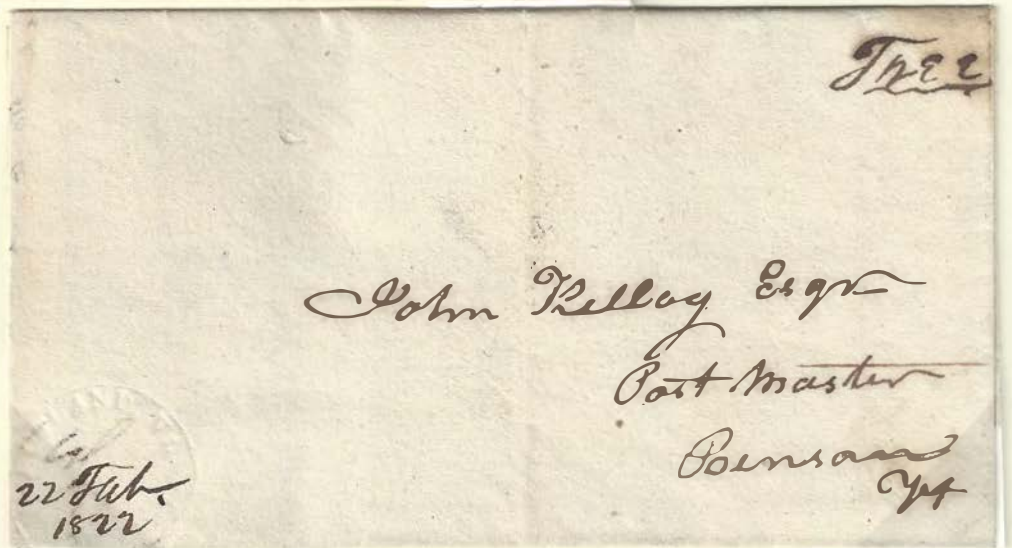 Free
John Kellog Esqr
Post Master
Benson
Vt
22 Feb.
1822